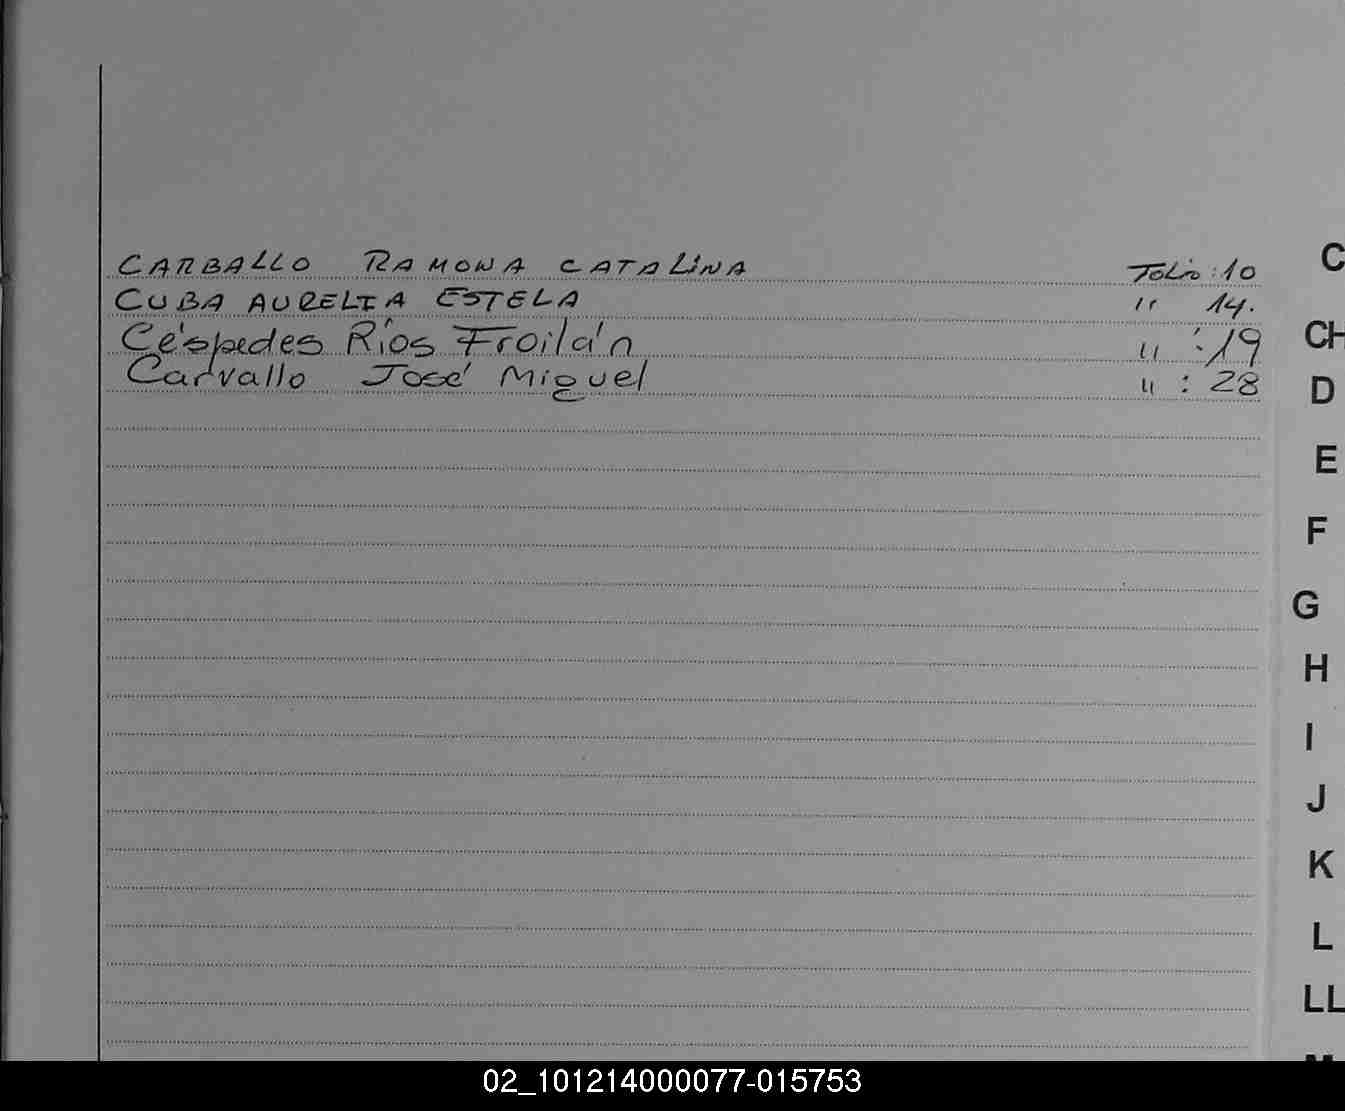 CARBALLO RAMONA CATALINA Folio: 10
CUBA AURELIA ESTELA " 14.
Céspedes Ríos Froilán " : 19
Carvallo José Miguel " : 28
C
CH
D
E
F
G
H
I
J
K
L
LL
02_101214000077-015753